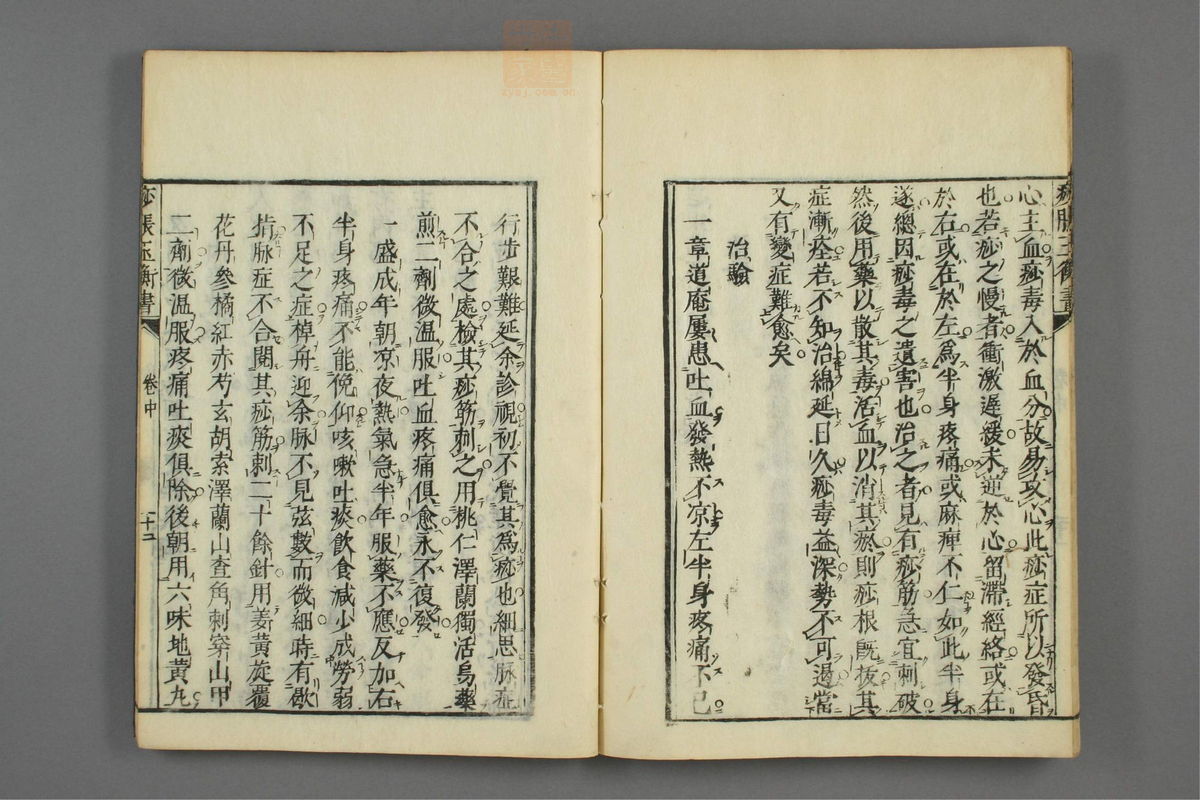 痧脹玉衡書
心主血痧毒入於血分故易攻心此痧症所以發昏
也若痧之慢者衝激遲緩未逆於心留滯經絡或在
於右或在於左爲半身疼痛或麻痺不仁如此半身
遂總因痧毒之遺害也治之者見有痧筋急宜刺破
然後用藥以散其毒活血以消其瘀則痧根既拔其
症漸痊若不知治綿延日久痧毒益深勢不可遏當
又有變症難愈矣
治驗
一章道庵屢患吐血發熱不凉左半身疼痛不已
行步艱難延余診視初不覺其爲痧也細思脉症
不合之處檢其痧筋刺之用桃仁澤蘭獨活烏藥
煎二劑微温服吐血疼痛俱愈永不復發
一盛成年朝凉夜熱氣急半年服藥不應反加右
半身疼痛不能俛仰咳嗽吐痰飲食減少成勞弱
不足之症棹舟迎余脉不見弦數而微細時有歇
指脉症不合閱其痧筋刺二十餘針用姜黄旋覆
花丹參橘紅赤芍玄胡索澤蘭山查角刺穿山甲
二劑微温服疼痛吐痰俱除後朝用六味地黄丸
痧脹玉衡書
卷中
十二
zysj.com.cn